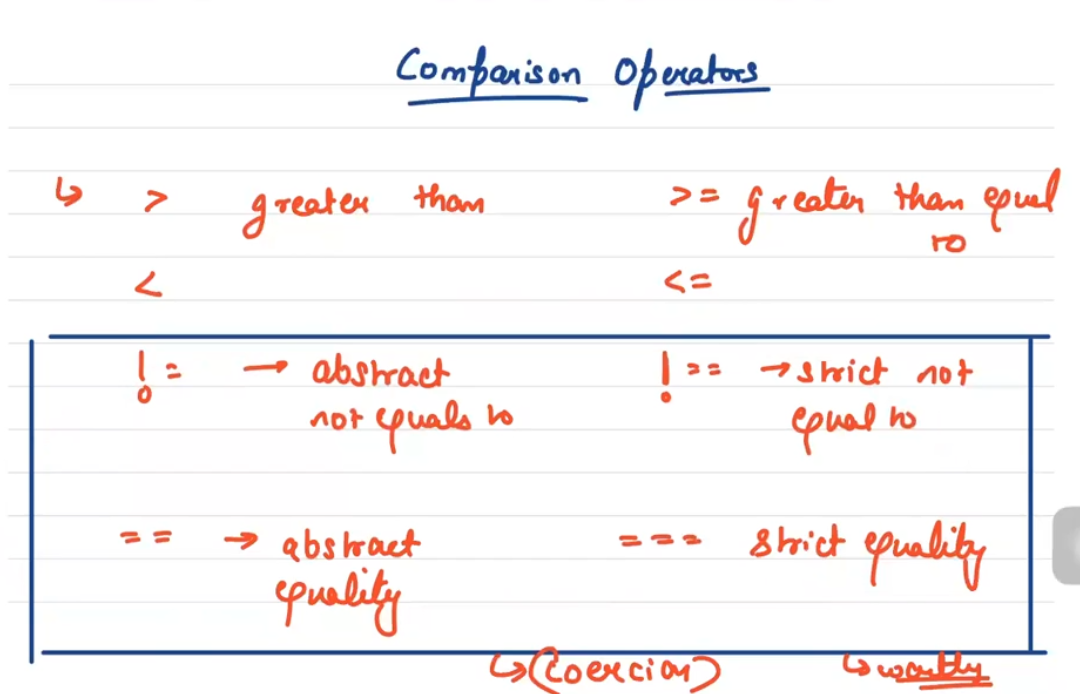 Comparison Operators
↳ > greater than >= greater than equal to
< <=
!= → abstract not equals to !== → strict not equal to
== → abstract equality === strict equality
↳ (Coercion) ↳